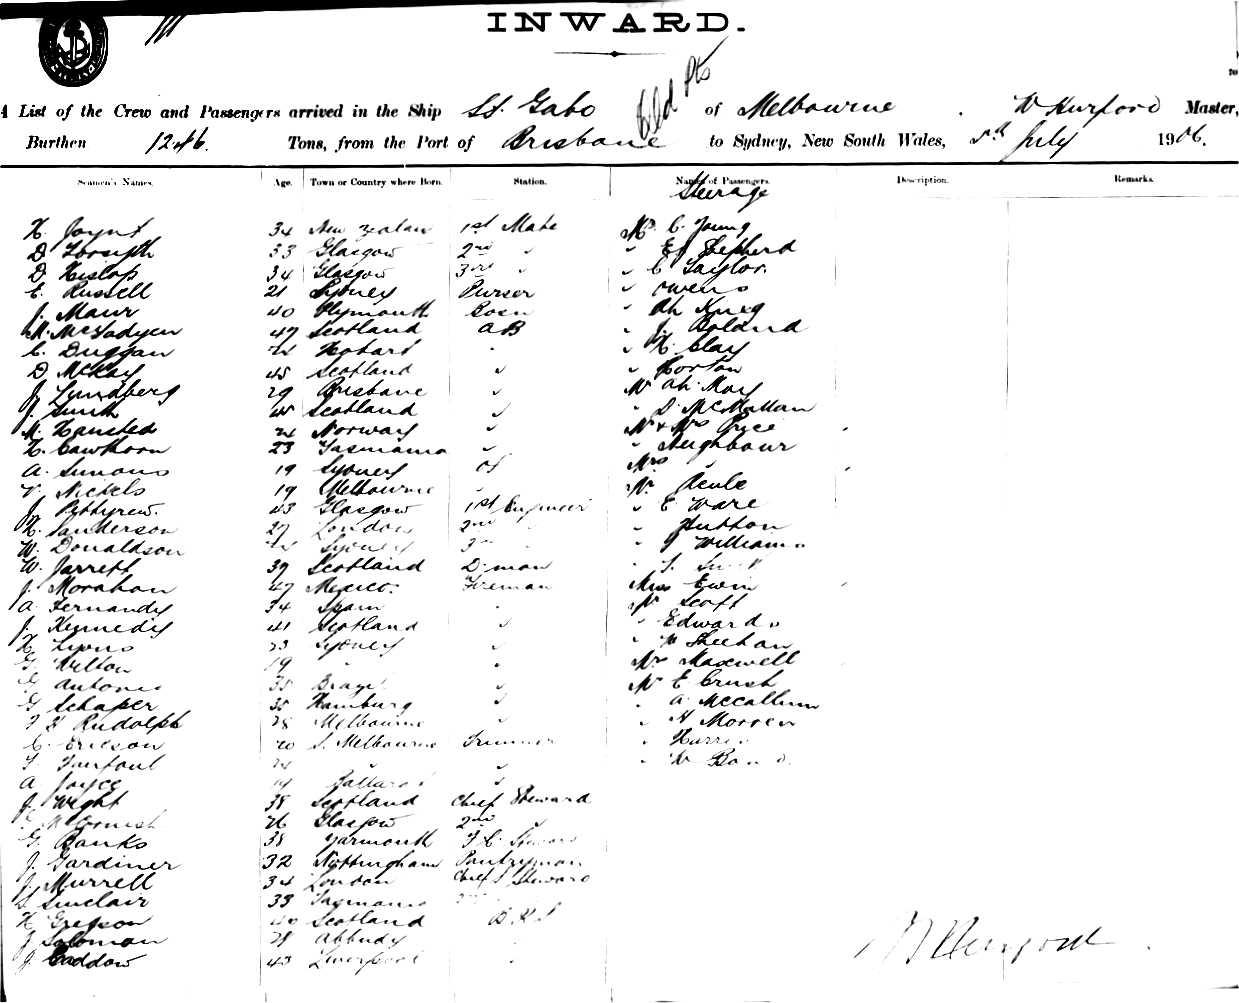 INWARD.
A List of the Crew and Passengers arrived in the Ship St. Gabo of Melbourne W Hurford Master,
Burthen 1246. Tons, from the Port of Brisbane to Sydney, New South Wales, 5th July 1906.
Seamen's Names. Age. Town or Country where Born. Station. Names of Passengers. Description. Remarks.
Steerage
H. Joynt 34 New Zealan 1st Mate Mr C. Young
D Forsyth 33 Glasgow 2nd " " Shepherd
D Hislop 34 Glasgow 3rd " " C Taylor.
E. Russell 21 Sydney Purser " Owens
J. Maur 40 Plymouth Bosn " Ah
M. McFadyen 47 Scotland AB " J Boland
C. Duggan Hobart " " H. Clay
D McKay 45 Scotland " " Horton
J Lundberg 29 Brisbane " Mr Ah. Moy
J. Smith 45 Scotland " " D. McMillan
M. Hansted 24 Norway " Mr & Mrs Pryce
H. Cawthorn 23 Tasmania " " Neighbour
A. Simons 19 Sydney OS Mrs "
V. Nickels 19 Melbourne " Mr.
J. Pettyrew. 43 Glasgow 1st Engineer " E Ware
H. Sanderson 27 London 2nd " " Hutton
W. Donaldson Sydney 3rd " " J Williams
W. Jarrett 39 Scotland D. man "
J. Morahan 47 Mexico. Fireman Miss Ewin
A Fernandy 34 Spain " Mr Scott
J. Kennedy 41 Scotland " " Edwards
H Lyons 23 Sydney " " W Sheehan
G. Wilton 19 " " Mr Maxwell
Antonio 35 Brazil " Mr E Crush
G Schaper 35 Hamburg " " A McCallum
F H Rudolph 28 Melbourne " " H
C. Ericson 20 S. Melbourne Trimmer "
T Fairfoul 24 " " " W
A Joyce 19 Ballarat "
J. Wight 38 Scotland Chief Steward
McCormish 26 Glasgow 2nd "
G. Banks 38 Yarmouth F. C. Steward
J. Gardiner 32 Nottingham Pantryman
J. Murrell 34 London Chief S Steward
Sinclair 33 Tasmania 2nd
H Gregson 40 Scotland
J Solomon 28
J. Caddow 43 Liverpool "
W Hurford